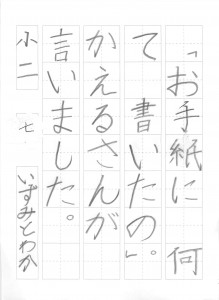 「お手紙に何
て書いたの。」
かえるさんが
言いました。
小二 七 いずみとわか